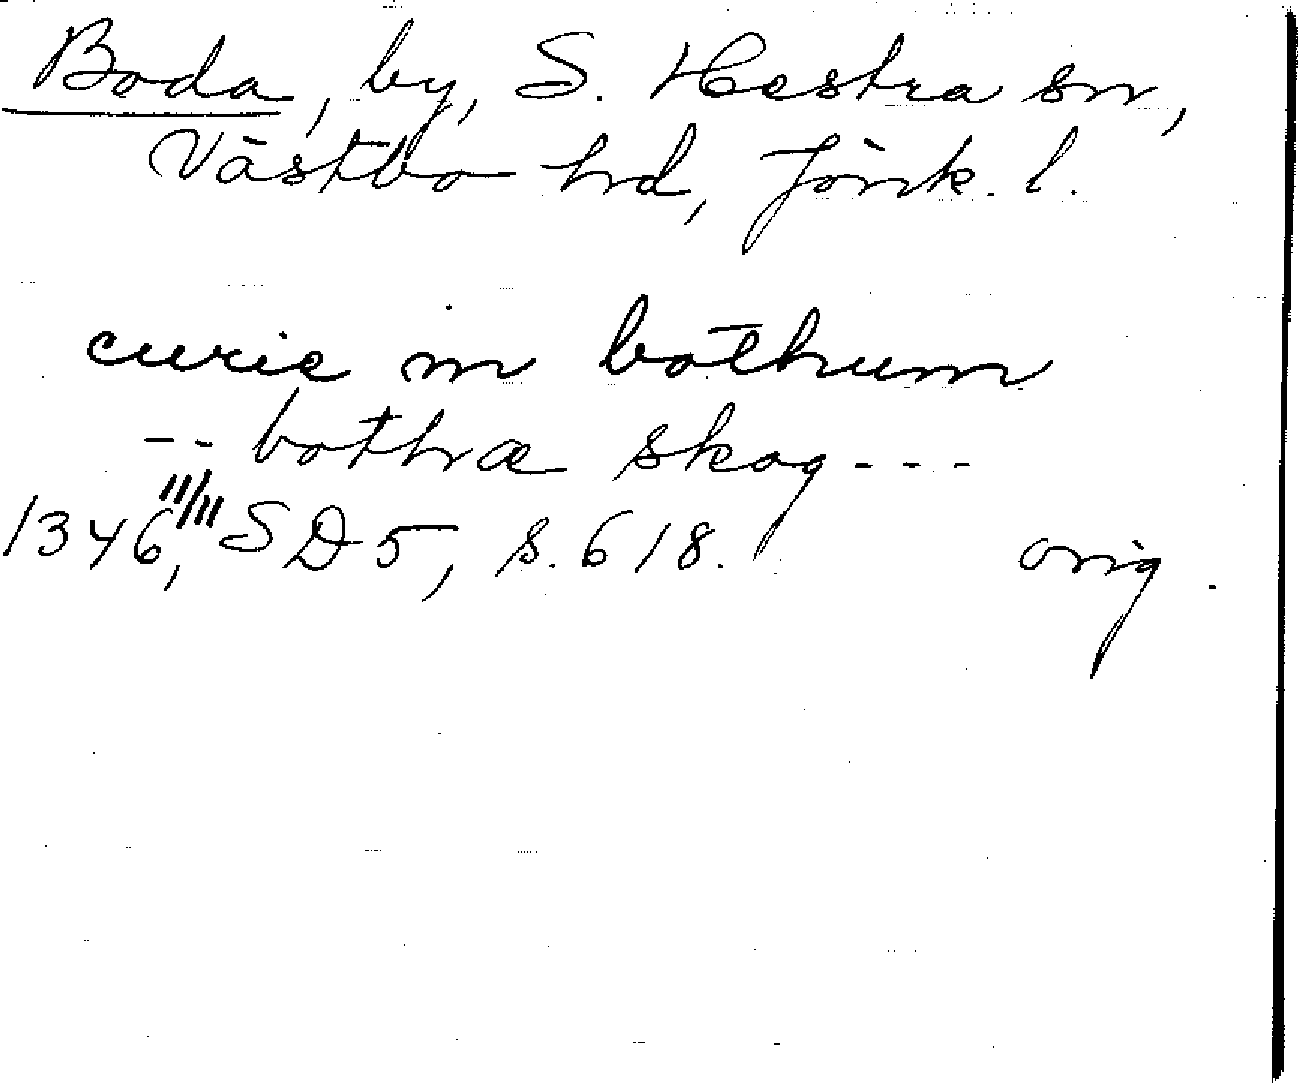 Boda, by, S. Hestra sn,
Västbo hd, Jönk. l.
curie in bothum
-- bothræ skog ---
1346 11/11, SD 5, s. 618. orig.